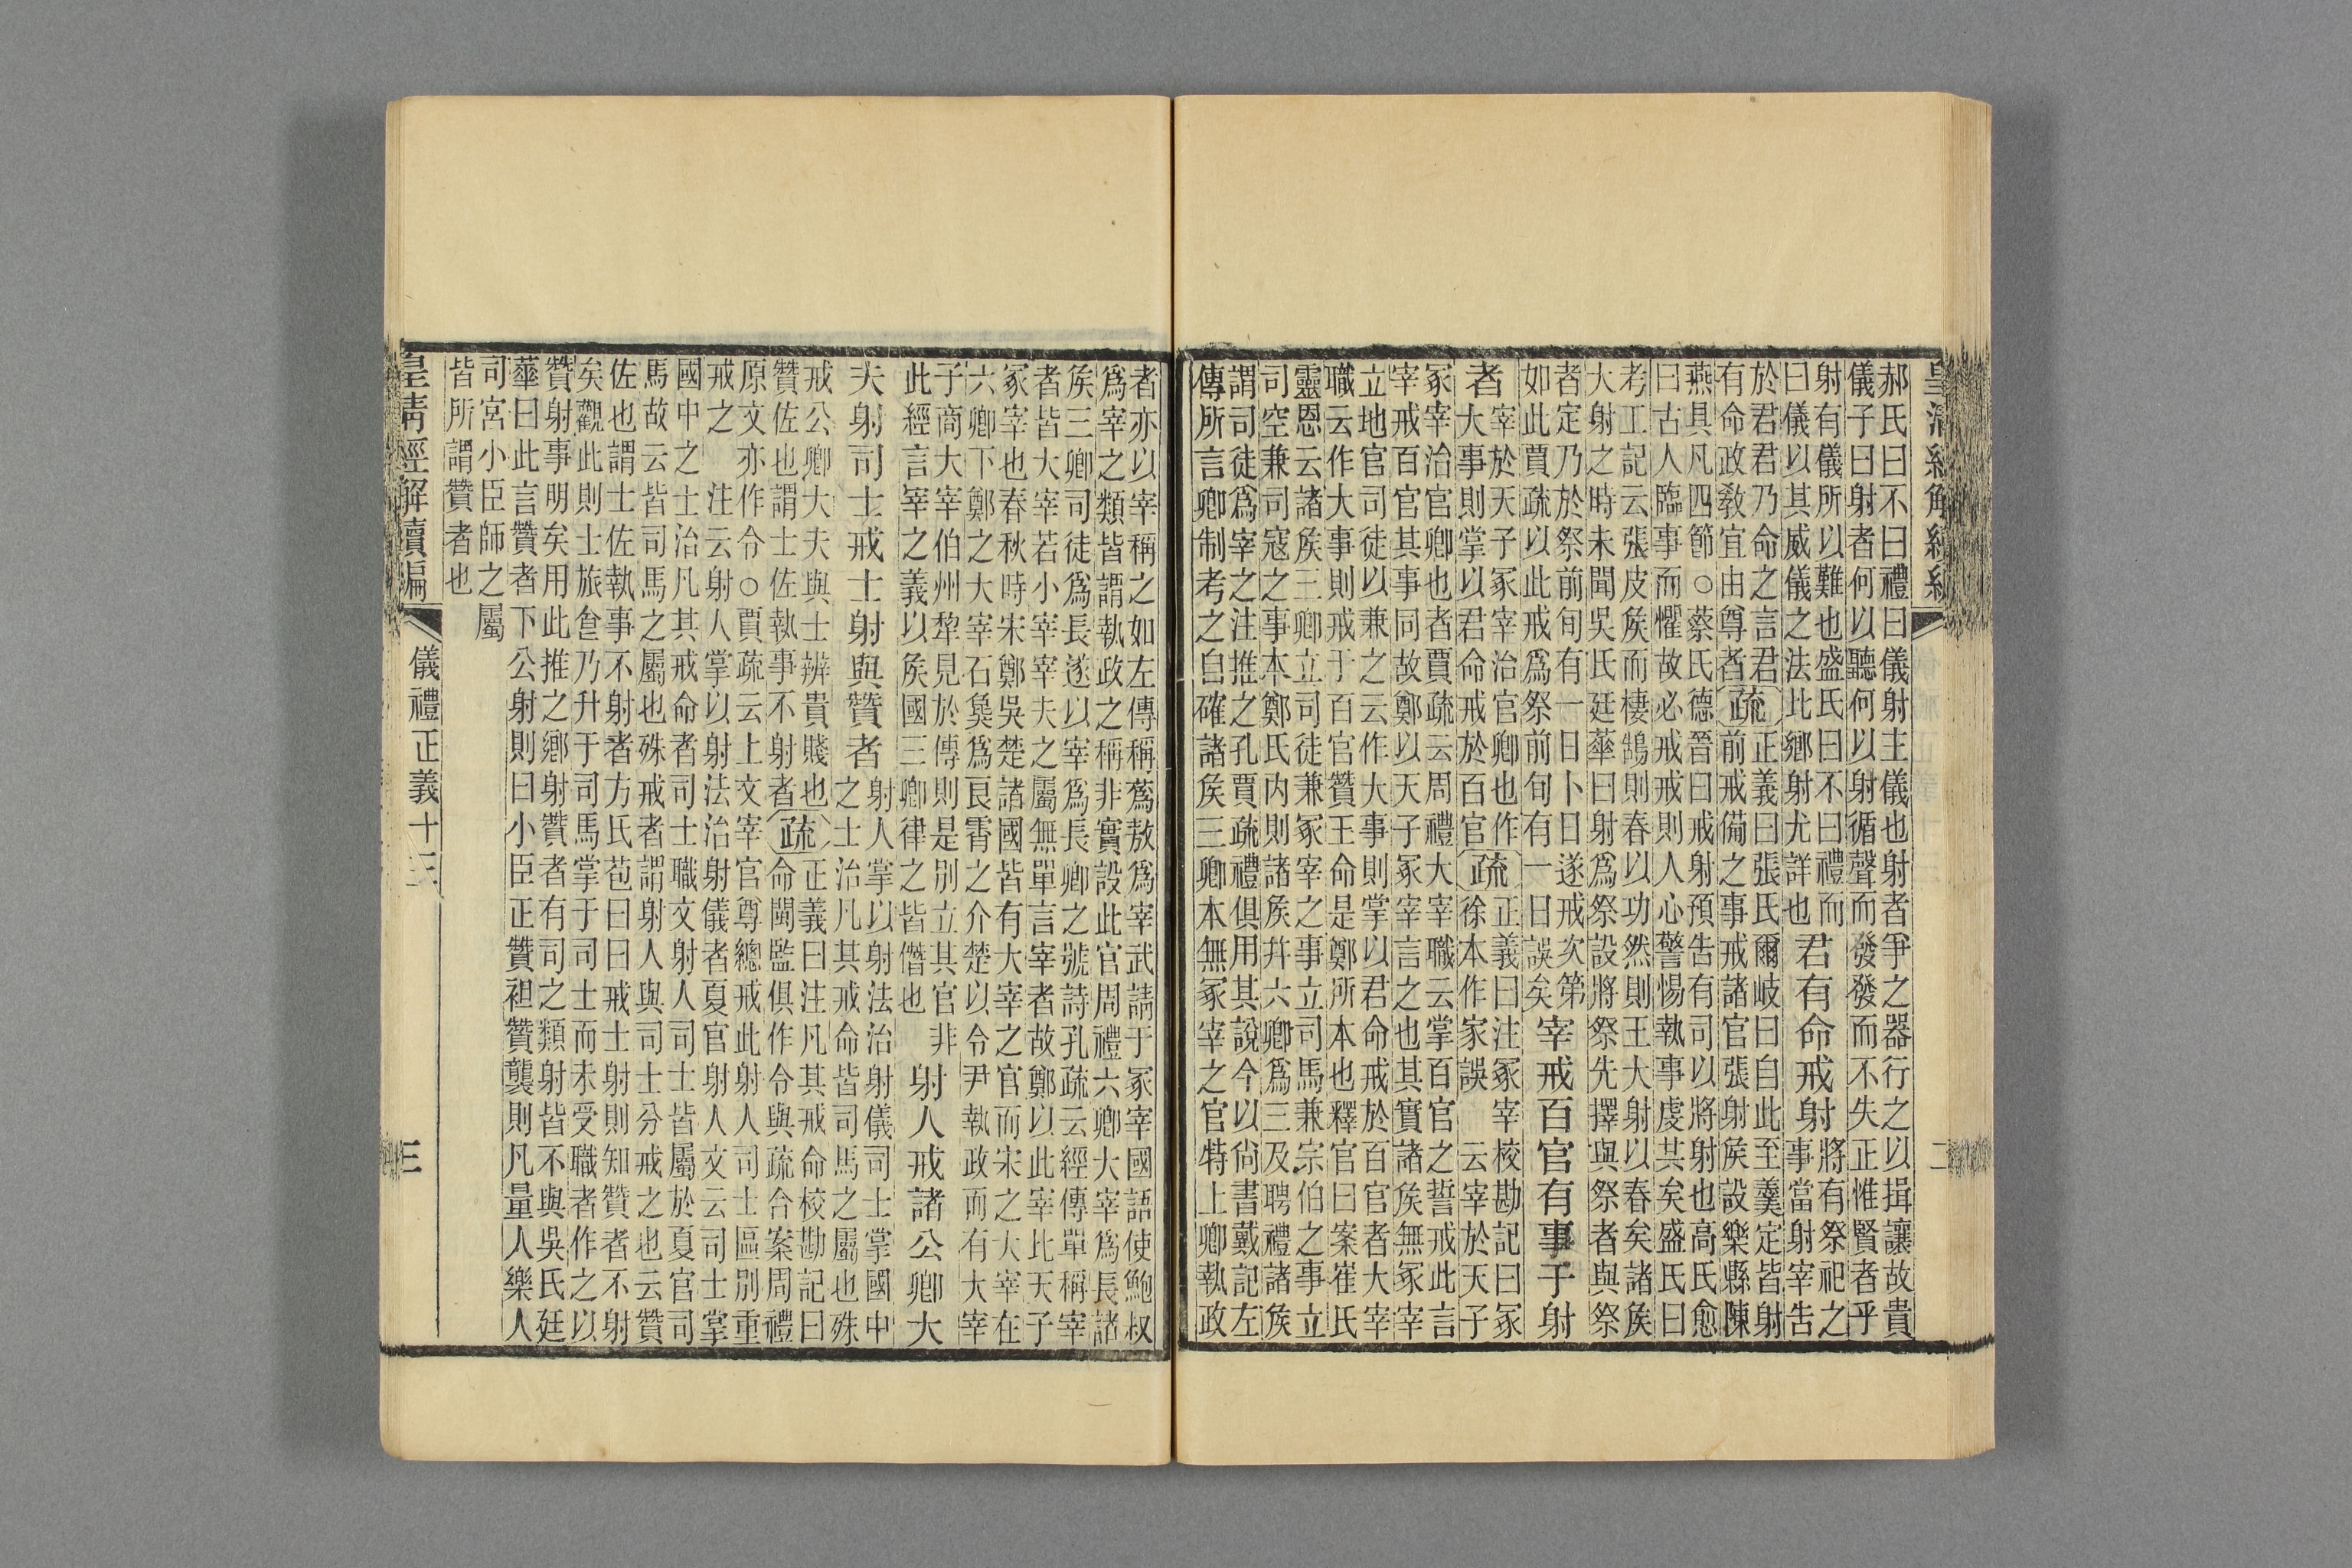 郝氏曰不曰禮曰儀射主儀也射者爭之器行之以揖讓故貴
儀子曰射者何以聽何以射循聲而發發而不失正惟賢者乎
射有儀所以難也盛氏曰不曰禮而
曰儀以其威儀之法此鄉射尤詳也
君有命戒射
將有祭祀之
事當射宰告
於君君乃命之言君
有命政敎宜由尊者
疏
正義曰張氏爾岐曰自此至羹定皆射
前戒備之事戒諸官張射矦設樂縣陳
燕具凡四節○蔡氏德晉曰戒射預告有司以將射也高氏愈
曰古人臨事而懼故必戒戒則人心警惕執事虔共矣盛氏曰
考工記云張皮矦而棲鵠則春以功然則王大射以春矣諸矦
大射之時未聞吳氏廷蕐曰射爲祭設將祭先擇與祭者與祭
者定乃於祭前旬有一日卜日遂戒次第
如此賈疏以此戒爲祭前旬有一日誤矣
宰戒百官有事于射
者
宰於天子冢宰治官卿也作
大事則掌以君命戒於百官
疏
正義曰注冢宰校勘記曰冢
徐本作家誤　云宰於天子
冢宰治官卿也者賈疏云周禮大宰職云掌百官之誓戒此言
宰戒百官其事同故鄭以天子冢宰言之也其實諸矦無冢宰
立地官司徒以兼之云作大事則掌以君命戒於百官者大宰
職云作大事則戒于百官贊王命是鄭所本也釋官曰案崔氏
靈恩云諸矦三卿立司徒兼冢宰之事立司馬兼宗伯之事立
司空兼司寇之事本鄭氏内則諸矦幷六卿爲三及聘禮諸矦
謂司徒爲宰之注推之孔賈疏禮俱用其說今以尙書戴記左
傳所言卿制考之自確諸矦三卿本無冢宰之官特上卿執政
者亦以宰稱之如左傳稱蔿敖爲宰武請于冢宰國語使鮑叔
爲宰之類皆謂執政之稱非實設此官周禮六卿大宰爲長諸
矦三卿司徒爲長遂以宰爲長卿之號詩孔疏云經傳單稱宰
者皆大宰若小宰宰夫之屬無單言宰者故鄭以此宰比天子
冢宰也春秋時宋鄭吳楚諸國皆有大宰之官而宋之大宰在
六卿下鄭之大宰石㚟爲良霄之介楚以令尹執政而有大宰
子商大宰伯州犂見於傳則是別立其官非
此經言宰之義以矦國三卿律之皆僭也
射人戒諸公卿大
夫射司士戒士射與贊者
射人掌以射法治射儀司士掌國中
之士治凡其戒命皆司馬之屬也殊
戒公卿大夫與士辨貴賤也
贊佐也謂士佐執事不射者
疏
正義曰注凡其戒命校勘記曰
命閩監俱作令與疏合案周禮
原文亦作令○賈疏云上文宰官尊總戒此射人司士區別重
戒之　注云射人掌以射法治射儀者夏官射人文云司士掌
國中之士治凡其戒命者司士職文射人司士皆屬於夏官司
馬故云皆司馬之屬也殊戒者謂射人與司士分戒之也云贊
佐也謂士佐執事不射者方氏苞曰曰戒士射則知贊者不射
矣觀此則士旅㑹乃升于司馬掌于司士而未受職者作之以
贊射事明矣用此推之鄉射贊者有司之類射皆不與吳氏廷
蕐曰此言贊者下公射則曰小臣正贊袒贊襲則凡量人樂人
司宮小臣師之屬
皆所謂贊者也
皇清經解續編
儀禮正義十三
三